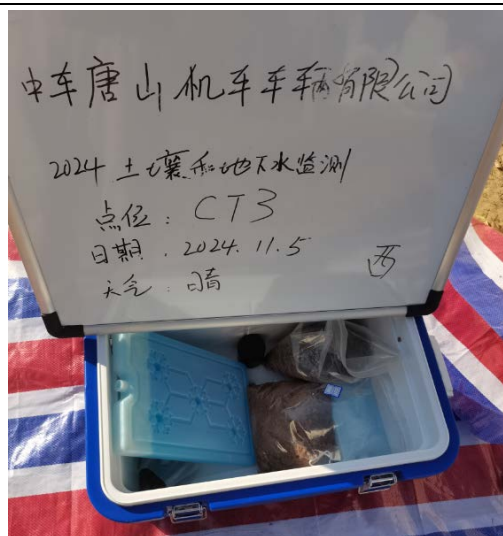 中车唐山机车车辆有限公司
2024 土壤和地下水监测
点位：CT3
日期．2024.11.5
西
天气：晴